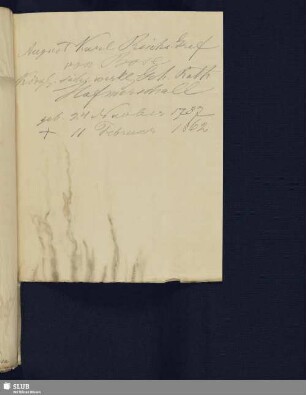 August Karl Reichs Graf
von Bose
Königl. sächs. wirkl. Geh. Rath
Hofmarschall
geb 24 November 1787
+ 11 Februar 1862
SLUB